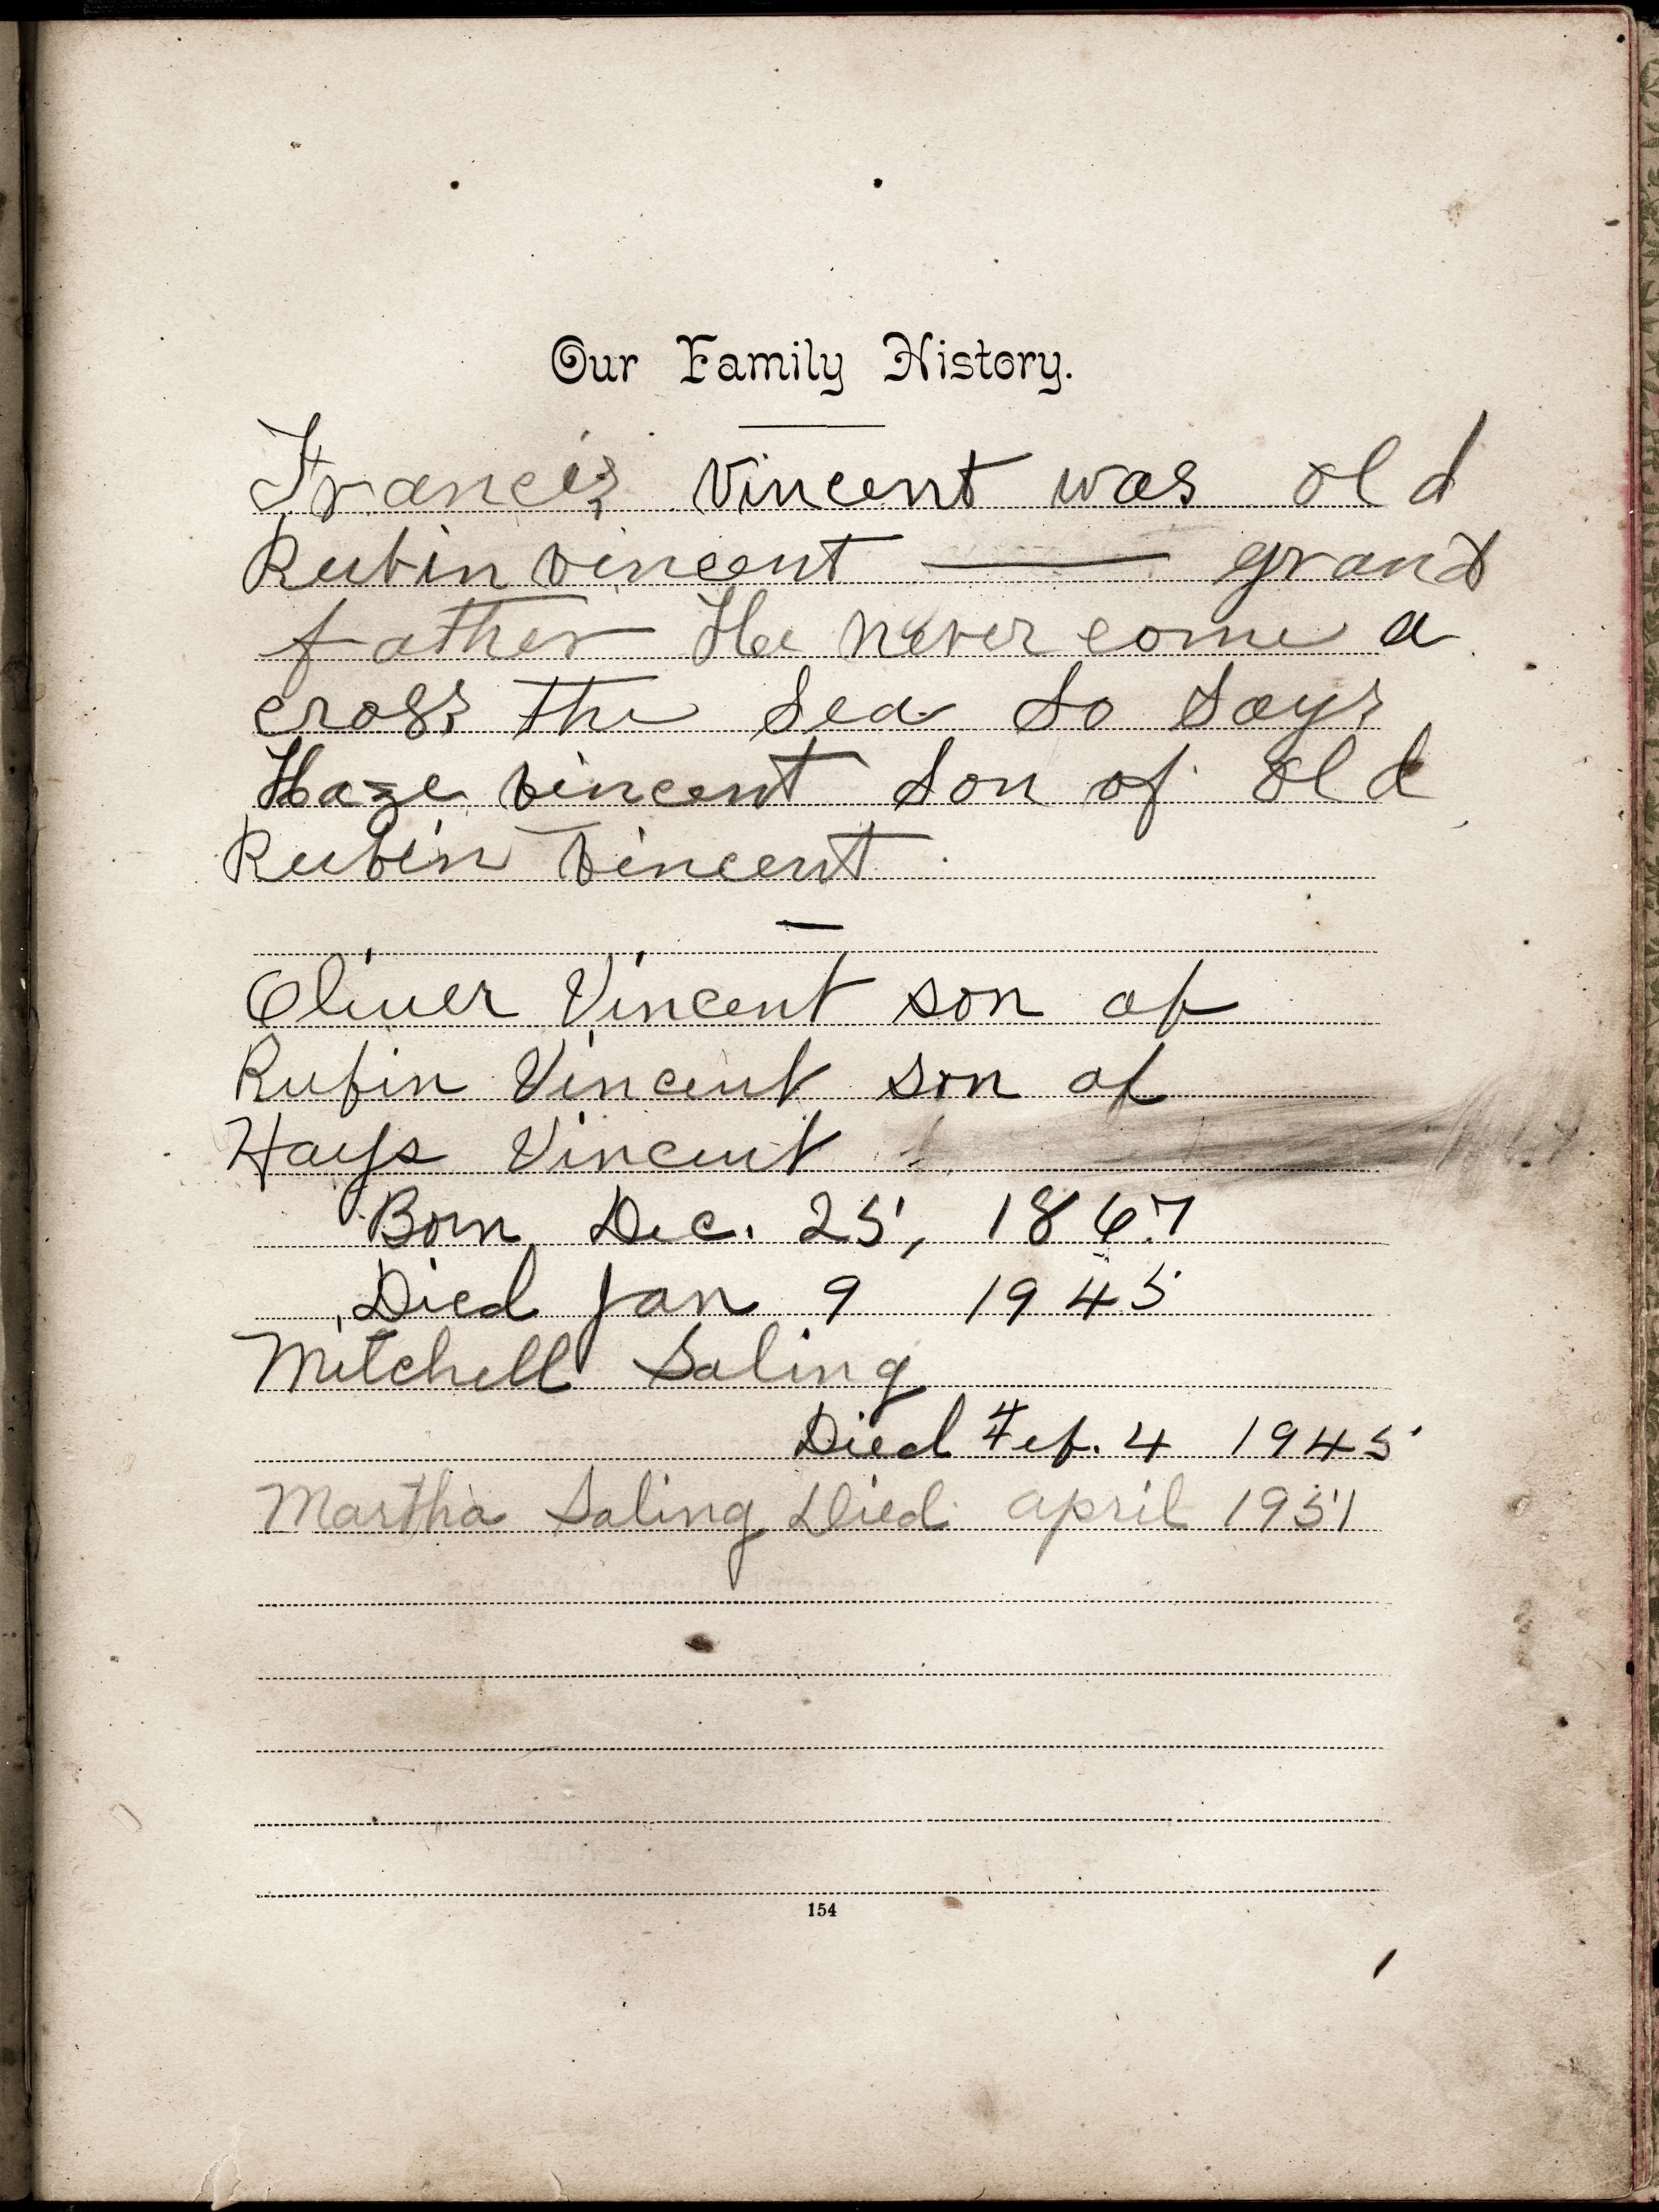 Our Family History.
Francis Vincent was old
Rubin Vincent — grand
father He never come a
cross the Sea So Says
Haze Vincent Son of old
Rubin Vincent
Oliver Vincent son of
Rubin Vincent son of
Hays Vincent
Born Dec. 25, 1867
Died Jan 9 1945
Mitchell Saling
Died Feb. 4 1945
Martha Saling Died april 1951
154